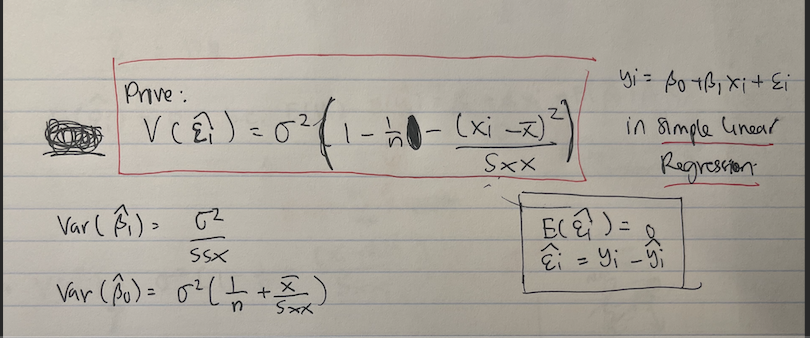 Prove:
V(ε̂i) = σ²(1 - 1/n - (xi - x̄)²/Sxx)
yi = β0 + β1 xi + εi
in simple linear
Regression.
Var(β̂1) = σ²/SSX
Var(β̂0) = σ²(1/n + x̄/Sxx)
E(ε̂i) = 0
ε̂i = yi - ŷi